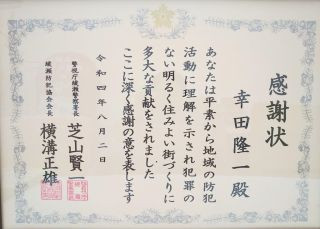 感謝状
幸田隆一殿
あなたは平素から地域の防犯
活動に理解を示され犯罪の
ない明るく住みよい街づくりに
多大な貢献をされました
ここに深く感謝の意を表します
令和四年八月二日
警視庁綾瀬警察署長
芝山賢一
綾瀬防犯協会会長
横溝正雄